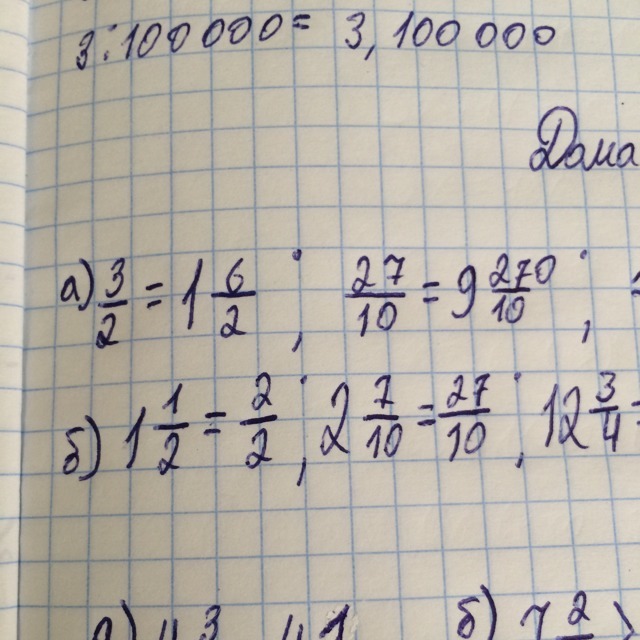 3:100 000 = 3,100 000
Дома
а) 3/2 = 1 6/2 ; 27/10 = 9 270/10 ;
б) 1 1/2 = 2/2 ; 2 7/10 = 27/10 ; 12 3/4 =
б) 7 2